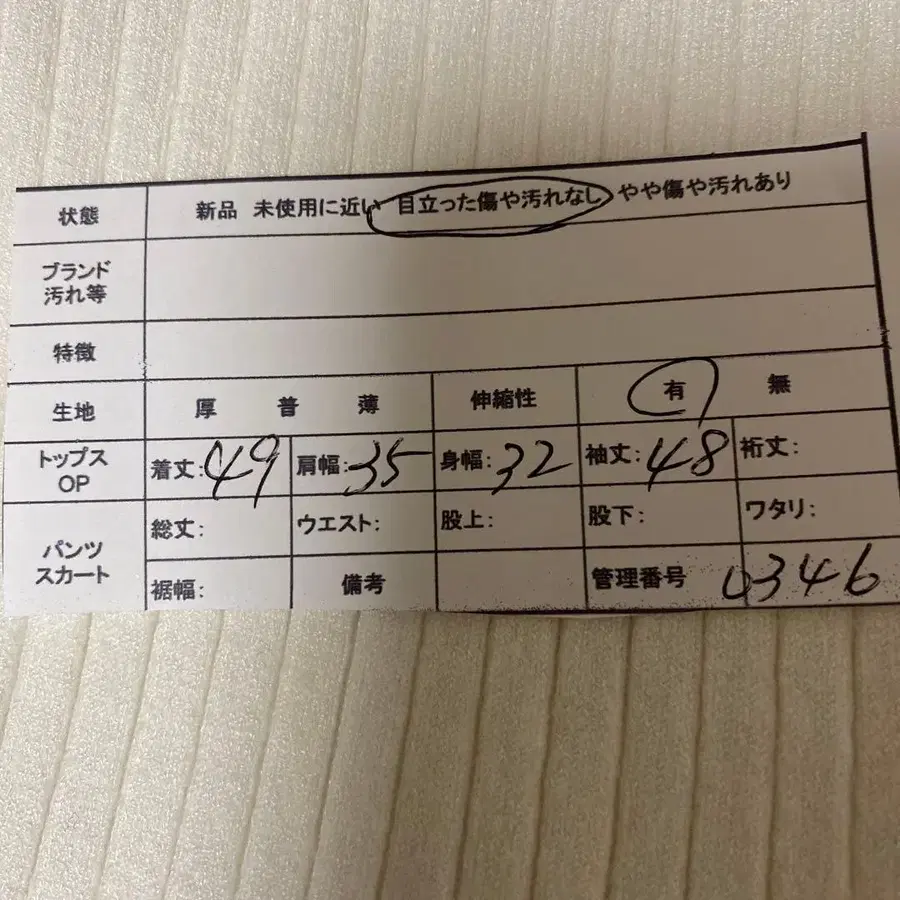 状態 新品 未使用に近い 目立った傷や汚れなし やや傷や汚れあり
ブランド
汚れ等
特徴
生地 厚 普 薄 伸縮性 有 無
トップス
OP
着丈:49 肩幅:35 身幅:32 袖丈:48 裄丈:
パンツ
スカート
総丈: ウエスト: 股上: 股下: ワタリ:
裾幅: 備考 管理番号 0346